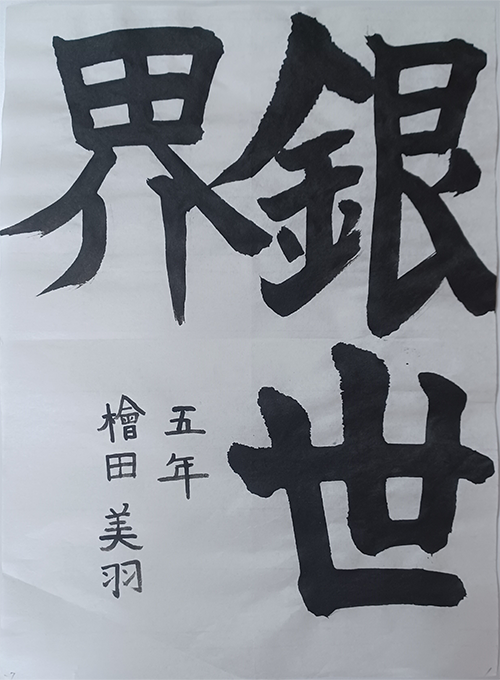 銀世
界
五年
檜田美羽